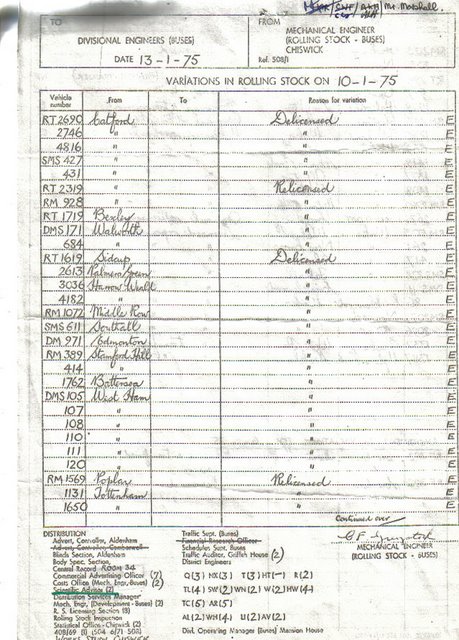 Mr. Marshall
TO
DIVISIONAL ENGINEERS (BUSES)
DATE 13-1-75
FROM
MECHANICAL ENGINEER
(ROLLING STOCK - BUSES)
CHISWICK
Ref. 508/1
VARIATIONS IN ROLLING STOCK ON 10-1-75
Vehicle number From To Reason for variation
RT 2690 Catford Delicensed E
2746 " " E
4816 " " E
SMS 427 " " E
431 " " E
RT 2319 " Relicensed E
RM 928 " " E
RT 1719 Bexley " E
DMS 171 Walworth " E
684 " " E
RT 1619 Sidcup Delicensed E
2613 Palmers Green " E
3036 Harrow Weald " E
4182 " " E
RM 1072 Middle Row " E
SMS 611 Southall " E
DM 971 Edmonton " E
RM 389 Stamford Hill " E
414 " " E
1762 Battersea " E
DMS 105 West Ham " E
107 " " E
108 " " E
110 " " E
111 " " E
120 " " E
RM 1569 Poplar Relicensed E
1131 Tottenham " E
1650 " " E
Continued over
MECHANICAL ENGINEER
(ROLLING STOCK - BUSES)
DISTRIBUTION
Advert, Controller, Aldenham
Advert, Controller, Camberwell
Blinds Section, Aldenham
Body Spec, Section,
Central Record ROOM 34
Commercial Advertising Officer (7)
Costs Office (Mech. Engr, Buses) (2)
Scientific Advisor (2)
Distribution Services Manager
Mech. Engr, (Development - Buses) (2)
R. S. Licensing Section (8)
Rolling Stock Inspection
Statistical Office - Chiswick (2)
408/69 (1) (504 6/71 508)
WORKS STUDY CHISWICK
Traffic Supt. (Buses)
Financial Research Officer
Schedules Supt, Buses
Traffic Auditor, Griffith House (2)
District Engineers
Q (3) NX (3) T (3) HT (-) R (2)
TL (4) SW (2) WN (2) W (2) HW (4)
TC (5) AR (5)
AL (2) WH (4) U (2) AV (2)
Divl. Operating Manager (Buses) Mansion House